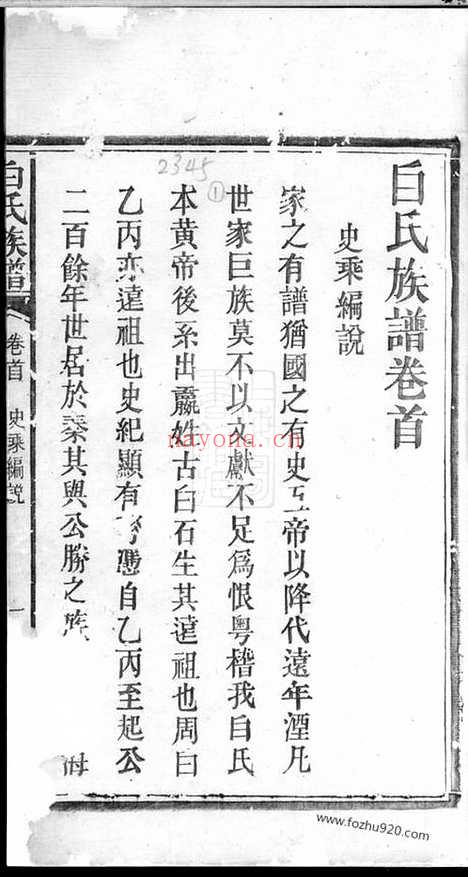 白氏族譜卷首
史乘編說
家之有譜猶國之有史五帝以降代遠年湮凡
世家巨族莫不以文獻不足爲恨粵稽我白氏
本黃帝後系出嬴姓古白石生其遠祖也周白
乙丙亦遠祖也史紀顯有憑自乙丙至起公
二百餘年世居於秦其與公勝之族
白氏族譜
卷首
史乘編說
一
2345
①
nayona.cn
www.fozhu920.com